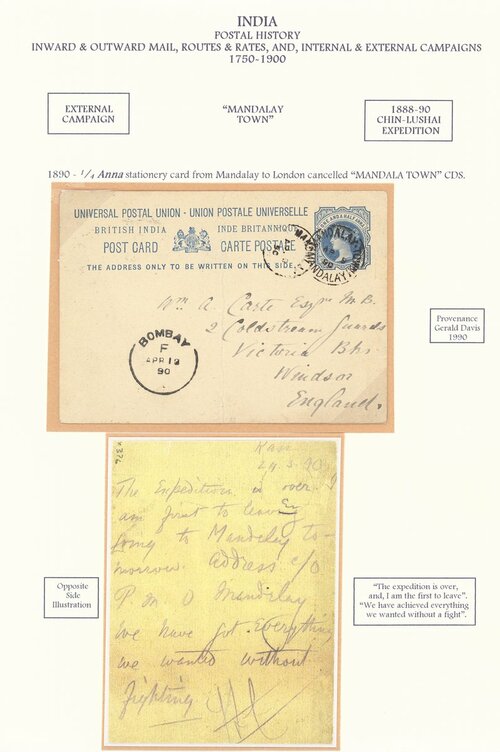 INDIA
POSTAL HISTORY
INWARD & OUTWARD MAIL, ROUTES & RATES, AND, INTERNAL & EXTERNAL CAMPAIGNS
1750-1900
EXTERNAL
CAMPAIGN
"MANDALAY
TOWN"
1888-90
CHIN-LUSHAI
EXPEDITION
1890 - 1/4 Anna stationery card from Mandalay to London cancelled "MANDALA TOWN" CDS.
UNIVERSAL POSTAL UNION - UNION POSTALE UNIVERSELLE
BRITISH INDIA INDE BRITANNIQUE
POST CARD CARTE POSTALE
THE ADDRESS ONLY TO BE WRITTEN ON THIS SIDE.
MANDALAY
Wm A. Carte Esqre M.B.
2 Coldstream Guards
Victoria Bks
Windsor
England.
BOMBAY
F
APR 12
90
Provenance
Gerald Davis
1990
24.3.90
The Expedition is over
am first to leave
Going to Mandalay to-
morrow. Address c/o
P M O Mandalay
We have got Everything
we wanted without
fighting
Opposite
Side
Illustration
"The expedition is over,
and, I am the first to leave".
"We have achieved everything
we wanted without a fight".